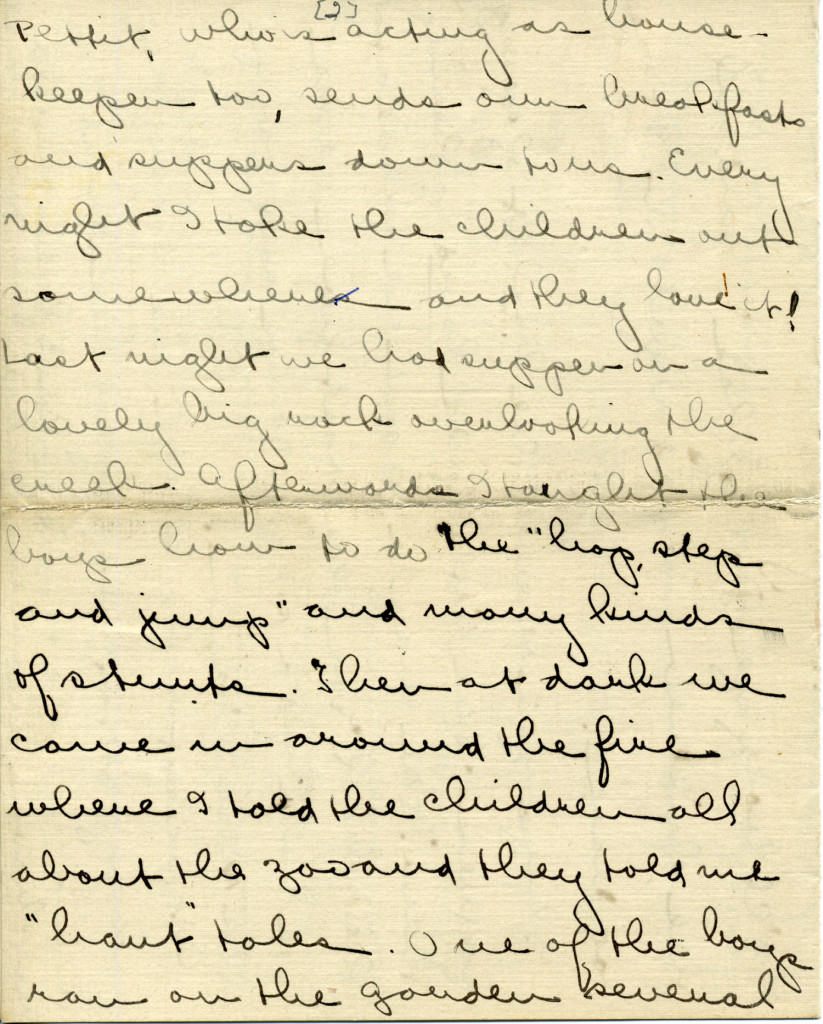 [2]
Pettit, who is acting as house-
keeper too, sends our breakfasts
and suppers down to us. Every
night I take the children out
somewheres and they love it!
Last night we had supper on a
lovely big rock overlooking the
creek. Afterwards I taught the
boys how to do the "hop, step
and jump" and many kinds
of stunts. Then at dark we
came in around the fire
where I told the children all
about the zoo and they told me
"haut" tales. One of the boys
ran on the garden several